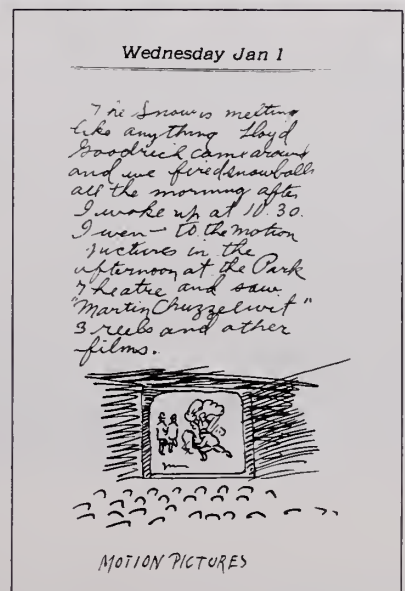 Wednesday Jan 1
The Snow is melting
like anything Lloyd
Goodrich came around
and we fired snowballs
all the morning after
I woke up at 10.30.
I went to the motion
pictures in the
afternoon at the Park
Theatre and saw
"Martin Chuzzelwit"
3 reels and other
films.
MOTION PICTURES